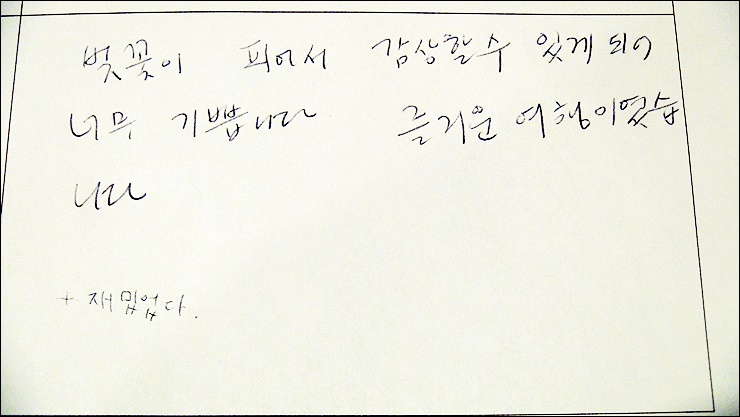 벚꽃이 피어서 감상할수 있게 되어
너무 기쁩니다 즐거운 여행이었습
니다
+ 재밌없다.